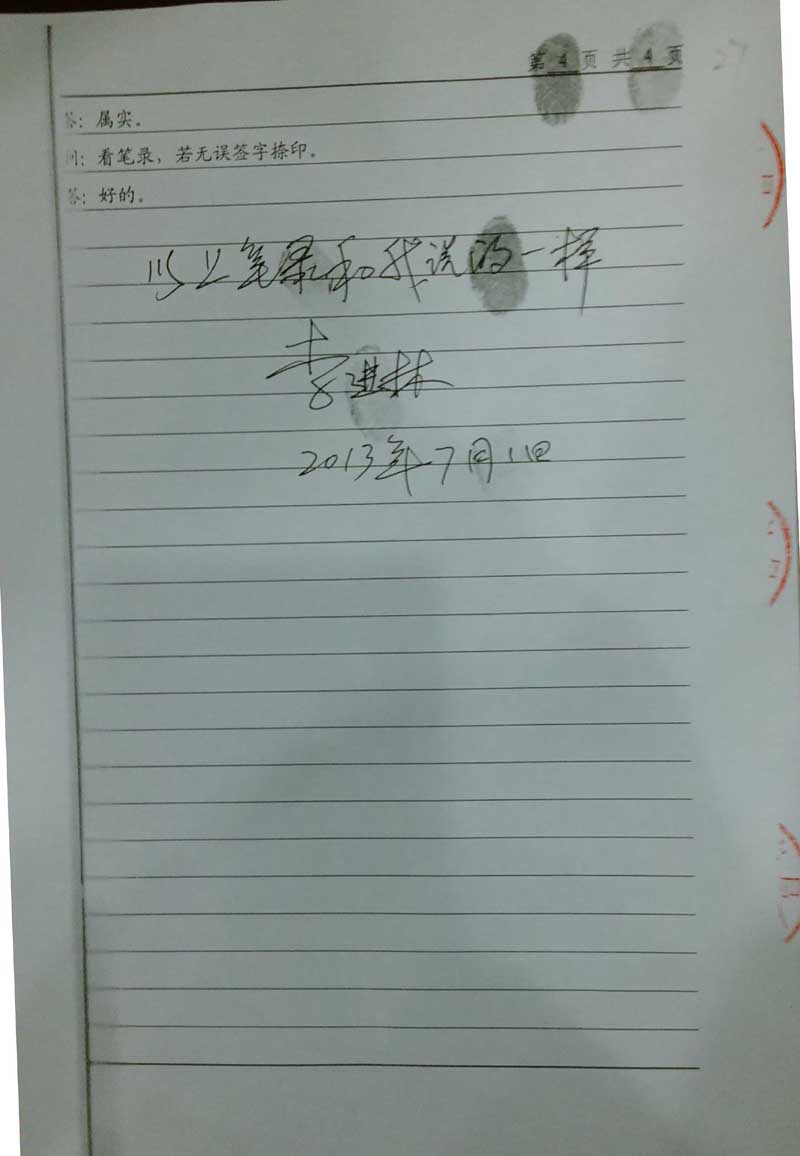 第 4 页 共 4 页
27
答：属实。
问：看笔录，若无误签字捺印。
答：好的。
以上笔录和我说的一样
李进林
2013年7月1日